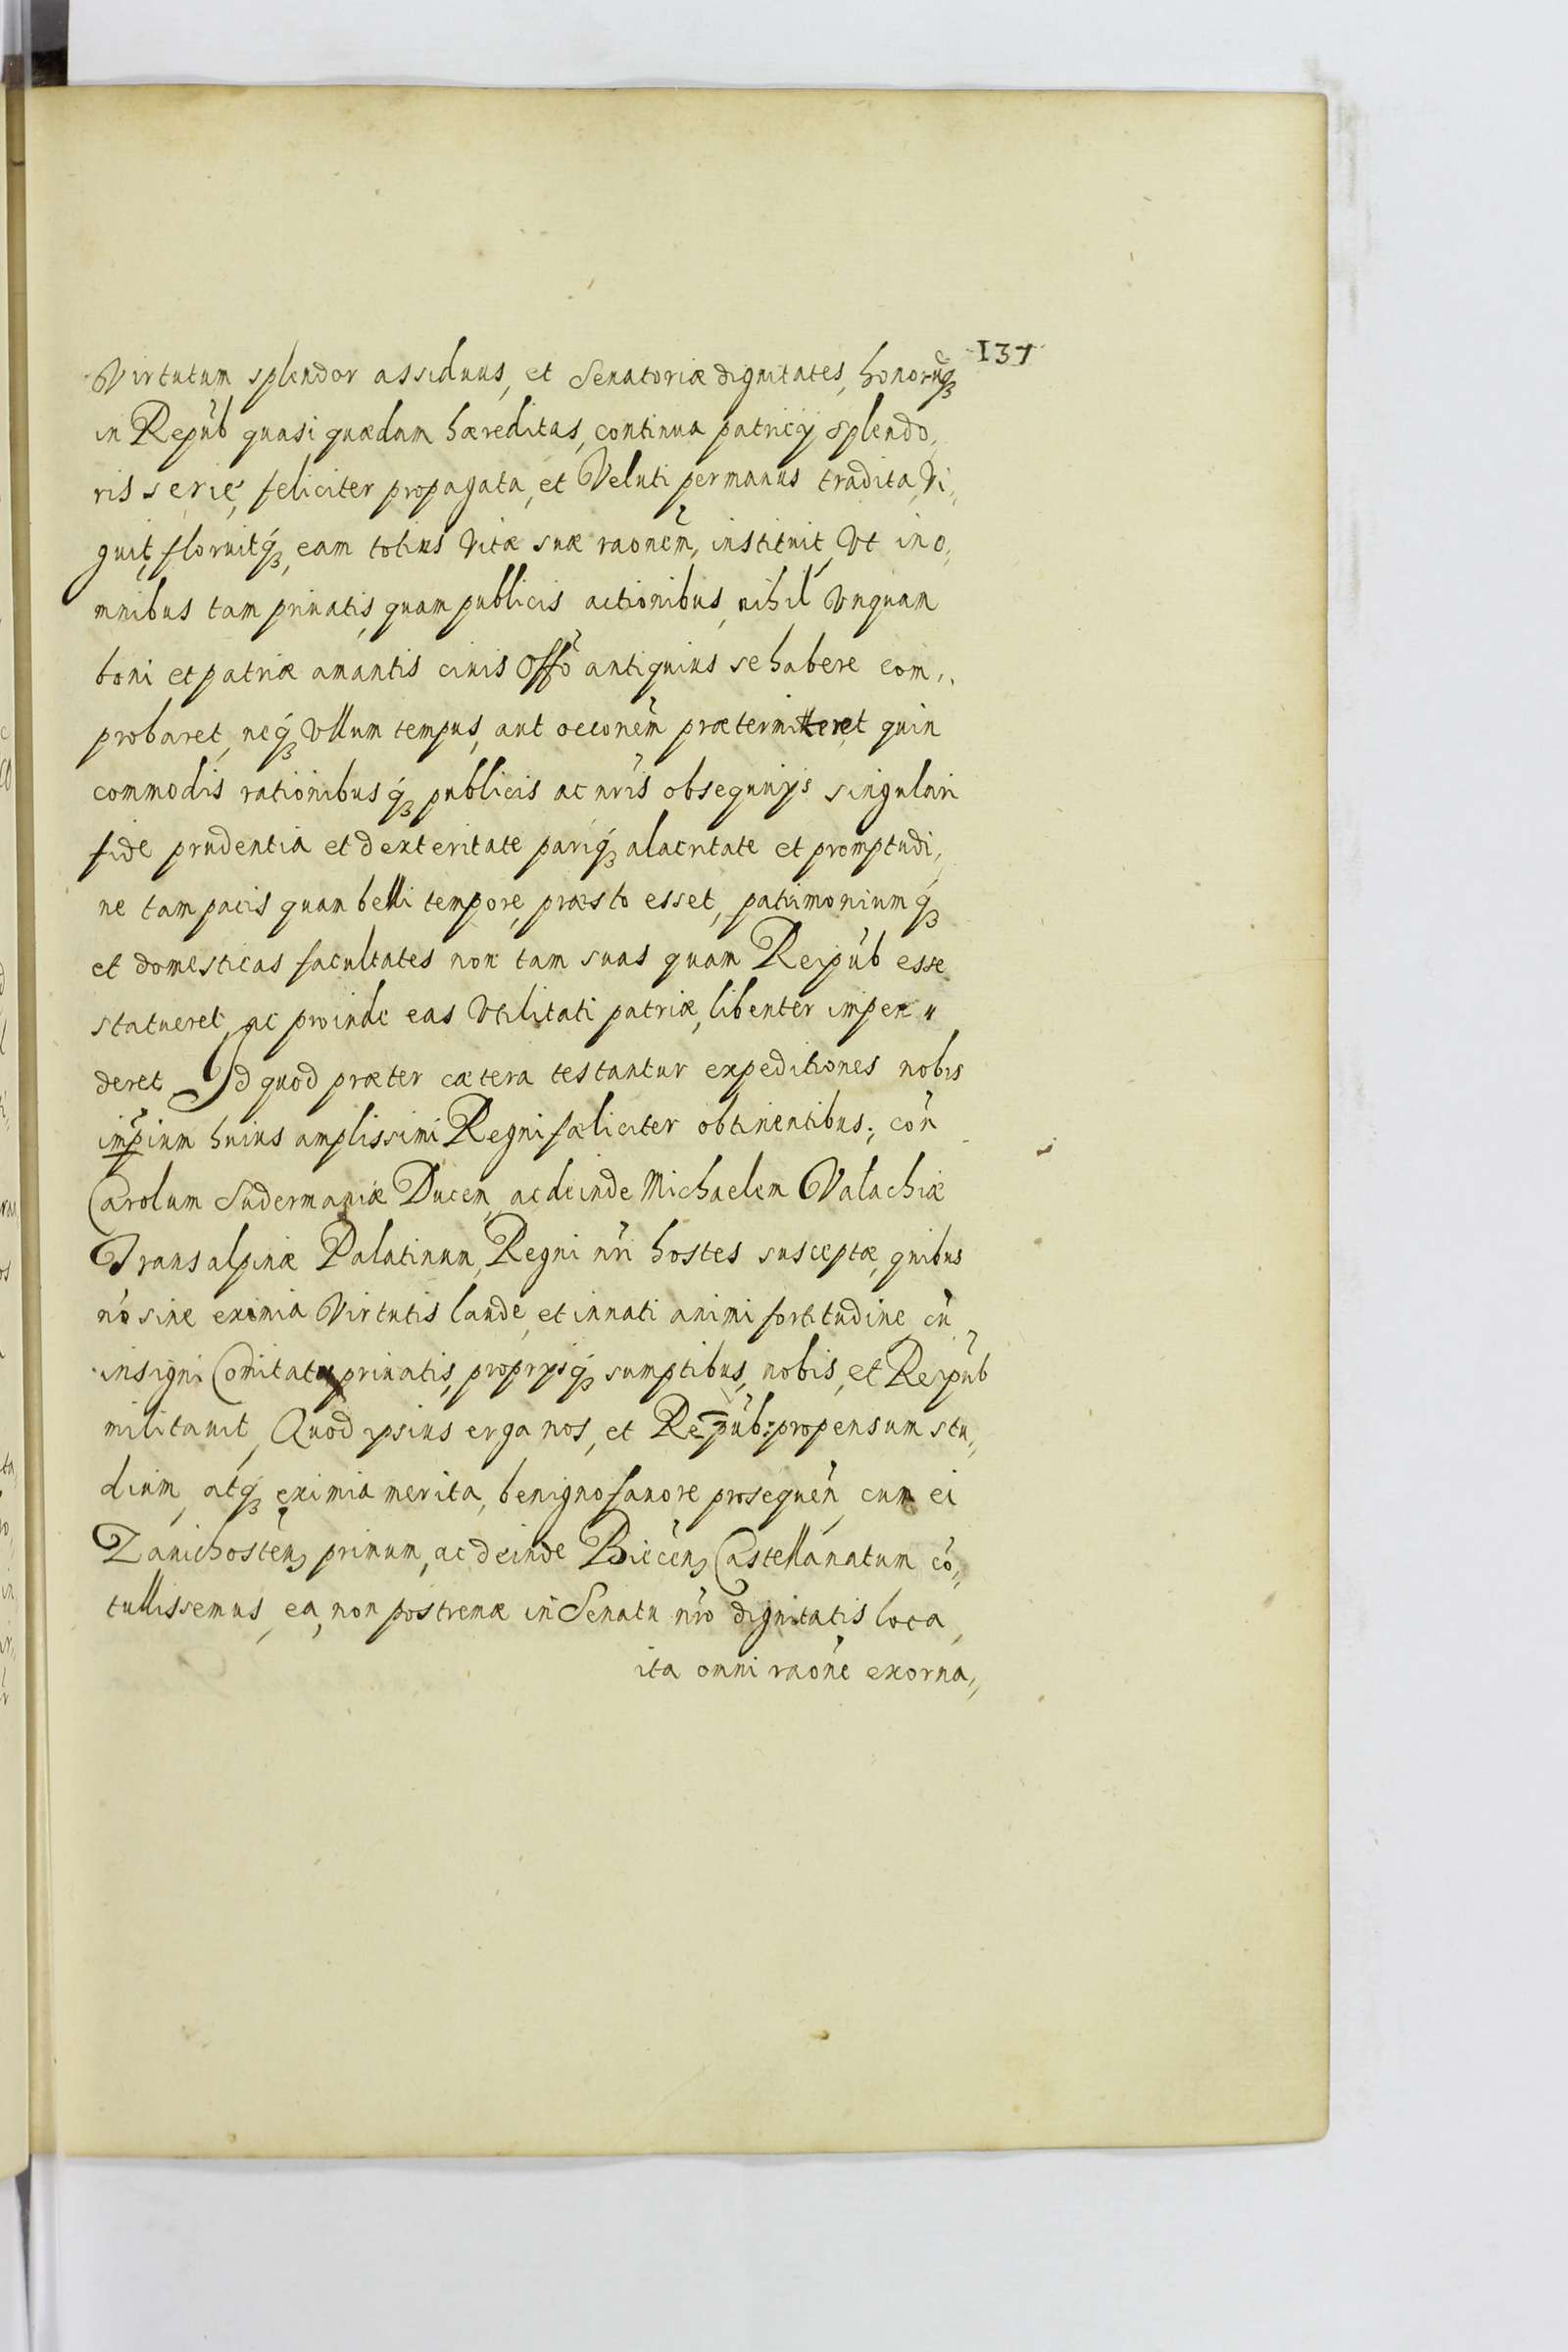 137
Virtutum splendor assiduus, et Senatoriæ dignitates, honorūq́ʒ
in Repúb quasi quædam hæreditas, continua patricij splendo,
ris serie, feliciter propagata, et Veluti permanus tradita, Vi,,
guit, floruitq́ʒ, eam totius Vitæ suæ raonem̃, instituit, Vt in o,
mnibus tam priuatis, quam publicis actionibus, nihil Vnquam
boni et patriæ amantis ciuis Offõ antiquius se habere com,,
probaret, neq́ʒ Vllum tempus, aut occonem̃ prætermitteret quin
commodis rationibusq́ʒ publicis ac nris̃ obsequijs singulari
fide prudentia et dexteritate pariq́ʒ alacritate et promptudi,,
ne tam pacis quam belli tempore, præsto esset, patrimoniumq́ʒ
et domesticas facultates non tam suas quam Reipúb esse
statueret, ac proinde eas Vtilitati patriæ, libenter impen,,
deret Id quod præter cætera testantur expeditiones nobis
imp̃ium huius amplissimi Regni fæliciter obtinentibus; coñ
Carolum Sudermaniæ Ducem, ac deinde Michaelem Valachiæ
Transalpinæ Palatinum, Regni nr̃i hostes susceptæ, quibus
nõ sine eximia Virtutis laude, et innati animi fortitudine, cũ
insigni Comitatu priuatis, proprijsq́ʒ sumptibus, nobis, et Reipúb
militauit, Quod ipsius erga nos, et Rempúb: propensum stu,,
dium, atq́ʒ eximia merita, benigno fauore prosequeñ, cum ei
Zauichosteñ, primum, ac deinde Bieceñ, Castellanatum cõ,,
tullissemus, ea, non postremæ in Senatu nr̃o dignitatis loca,
ita omni raonẽ exorna,,